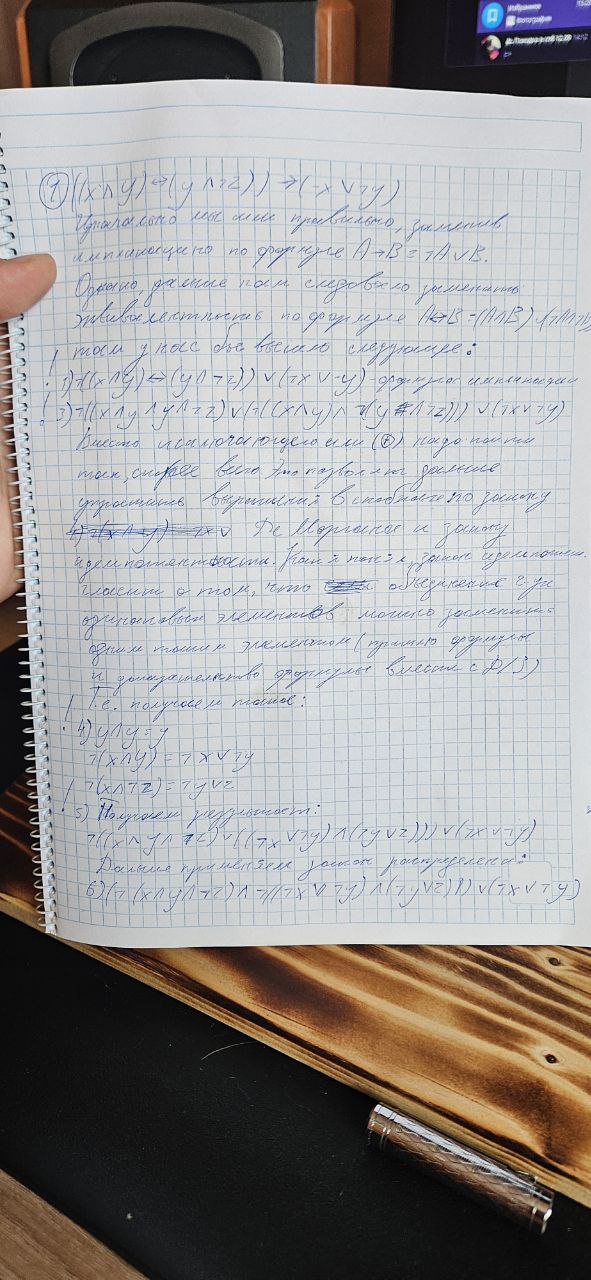 Избранное
Фотография
1) ((x∧y)↔(y∧¬z))→(¬x∨¬y)
Изначально мы шли правильно, заменив
импликацию по формуле A→B=¬A∨B.
Однако, дальше нам следовало заменить
эквивалентность по формуле A↔B=(A∧B)∨(¬A∧¬B)
так у нас бы вышло следующее:
! 1) ¬((x∧y)↔(y∧¬z))∨(¬x∨¬y) - формула импликации
! 3) ¬((x∧y∧y∧¬z)∨(¬((x∧y)∧¬(y∧¬z)))∨(¬x∨¬y)
Вместо исключающего или (⊕) надо пойти
так, скорее всего это позволяет дальше
упростить выражения в скобках по закону
Де Моргана и закону
идемпотентности. Как я понял, закон идемпотен.
гласит о том, что объединение 2-ух
одинаковых элементов можно заменить
одним таким элементом (пришлю формулы
и доказательство формулы вместе с Д/З)
Т.е. получаем такое:
! 4) y∧y=y
¬(x∧y)=¬x∨¬y
¬(x∧¬z)=¬y∨z
! 5) Получаем результат:
¬((x∧y∧¬z)∨((¬x∨¬y)∧(¬y∨z)))∨(¬x∨¬y)
Дальше применяем законы распределени:
6) (¬(x∧y∧¬z)∧¬((¬x∨¬y)∧(¬y∨z)))∨(¬x∨¬y)